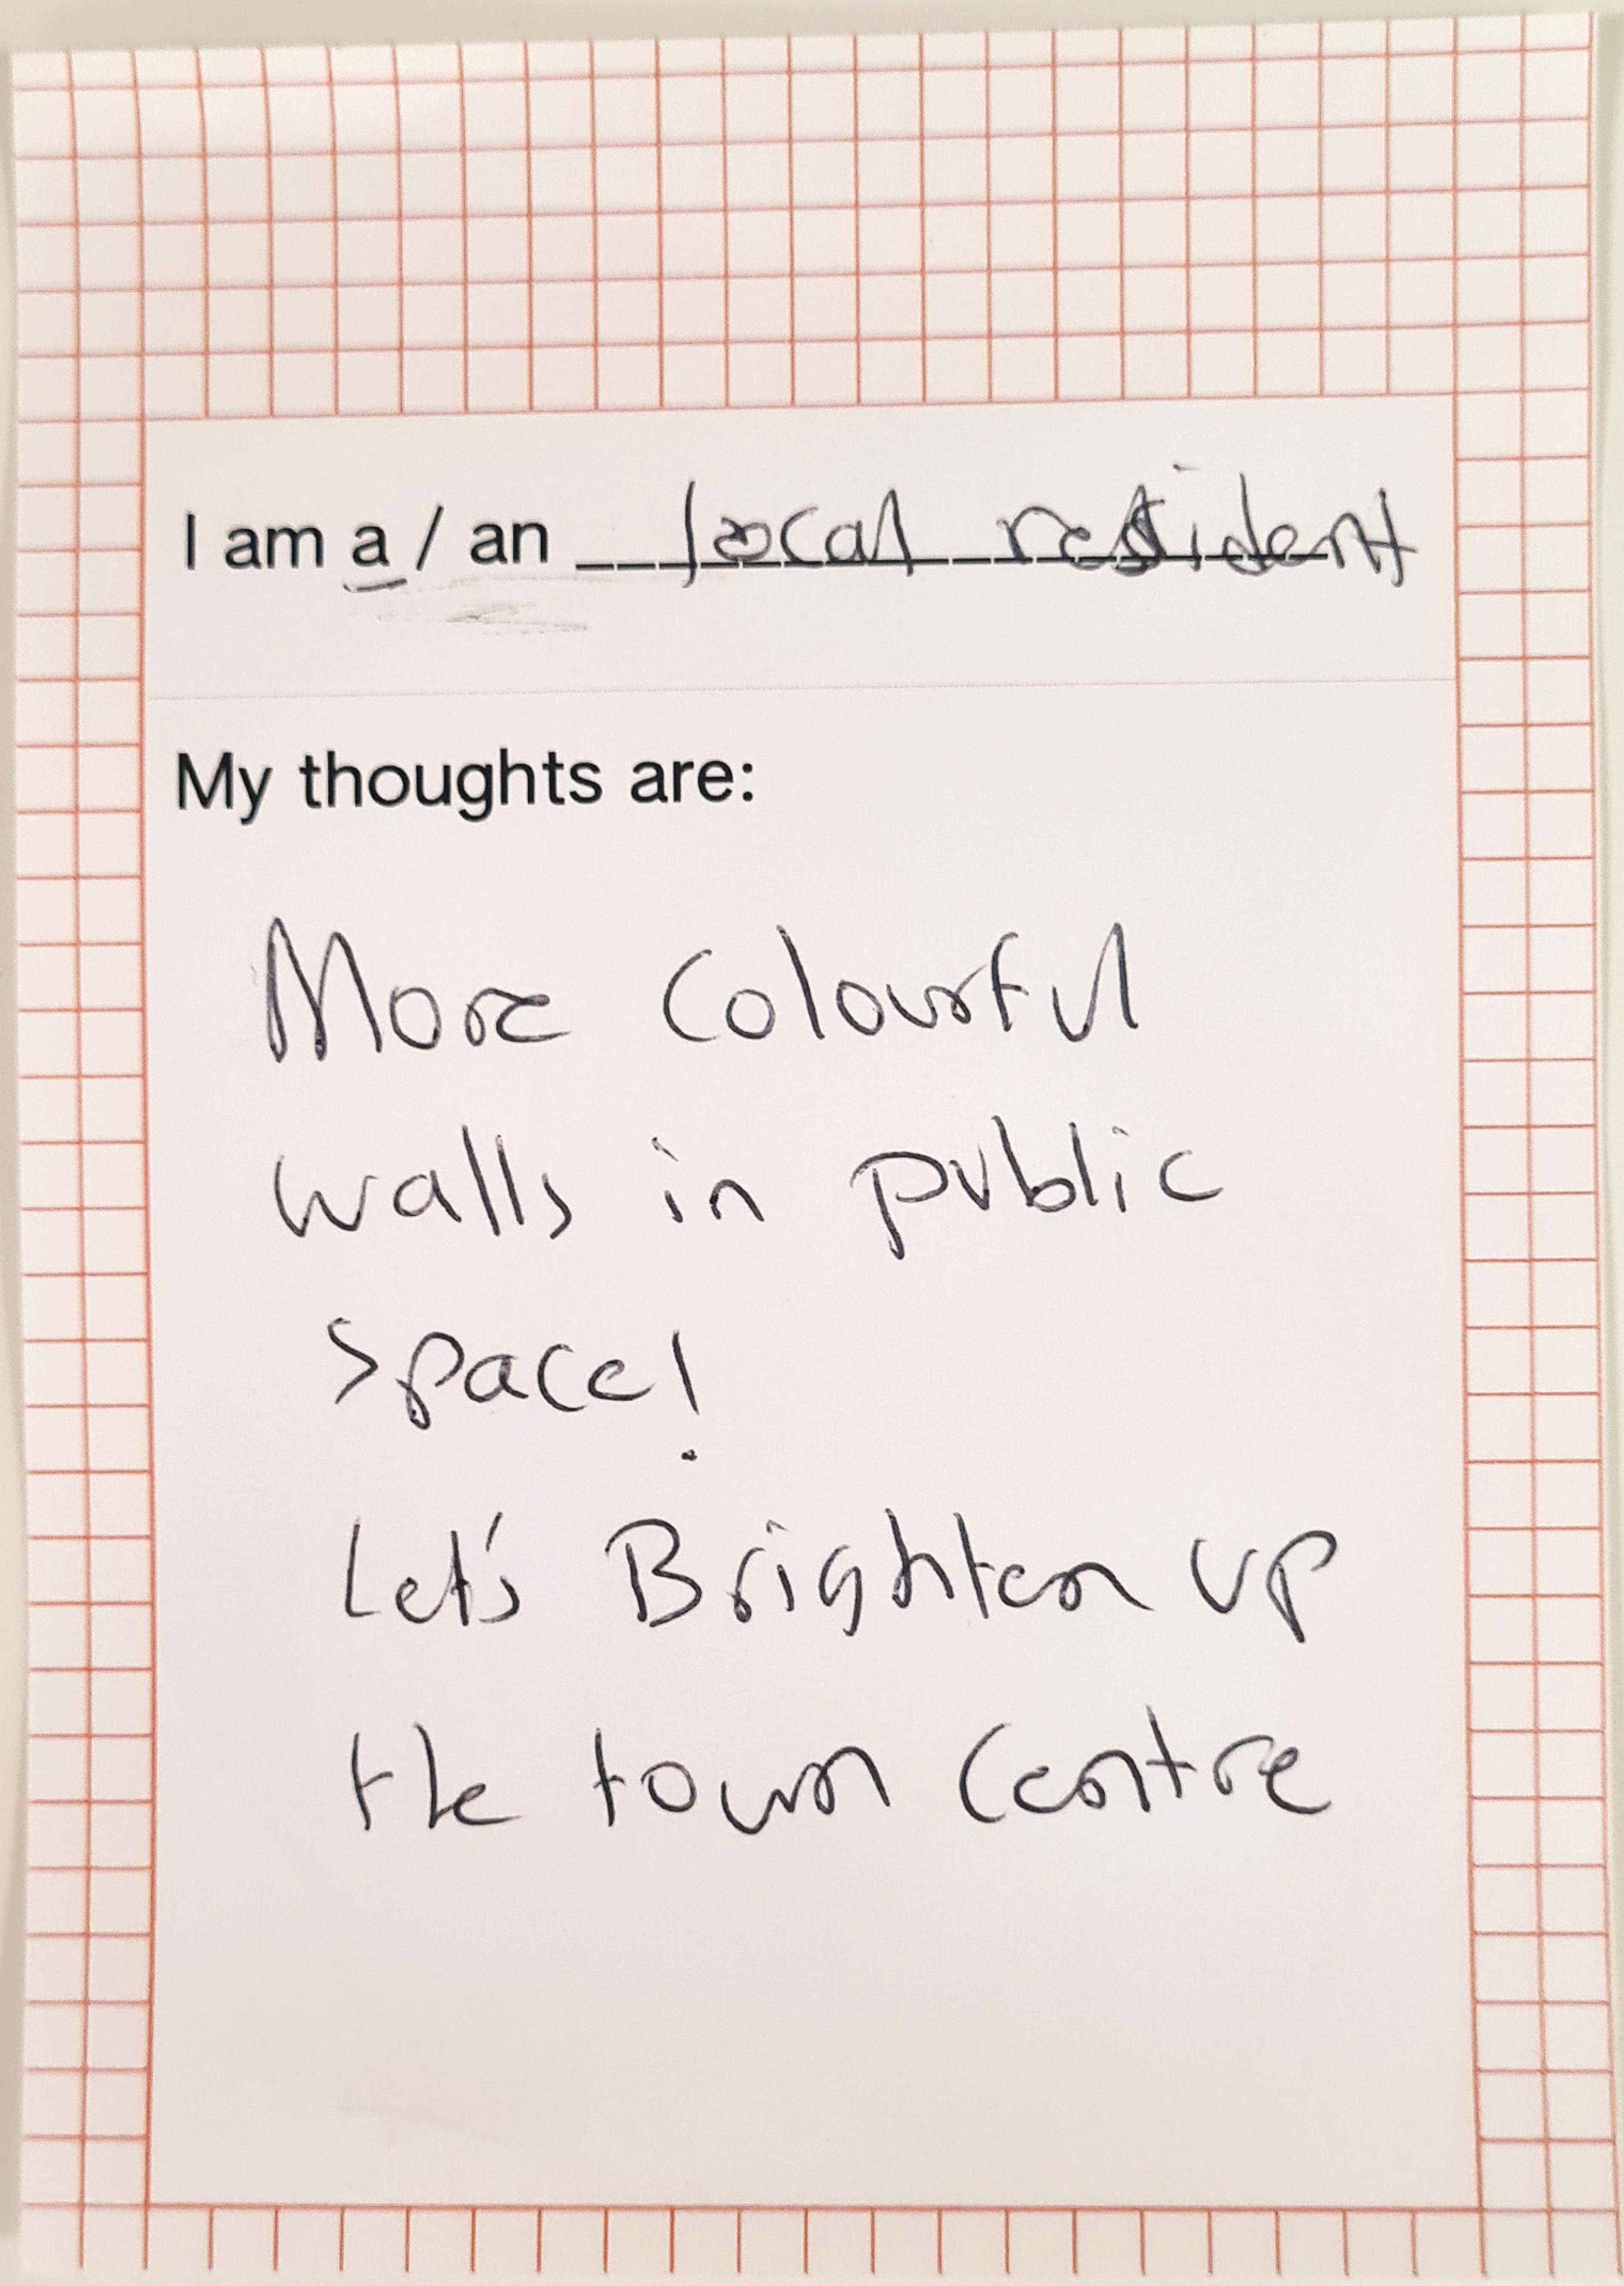 I am a / an local resident
My thoughts are:
More Colourful
walls in public
space!
Let's Brighten up
the town Centre